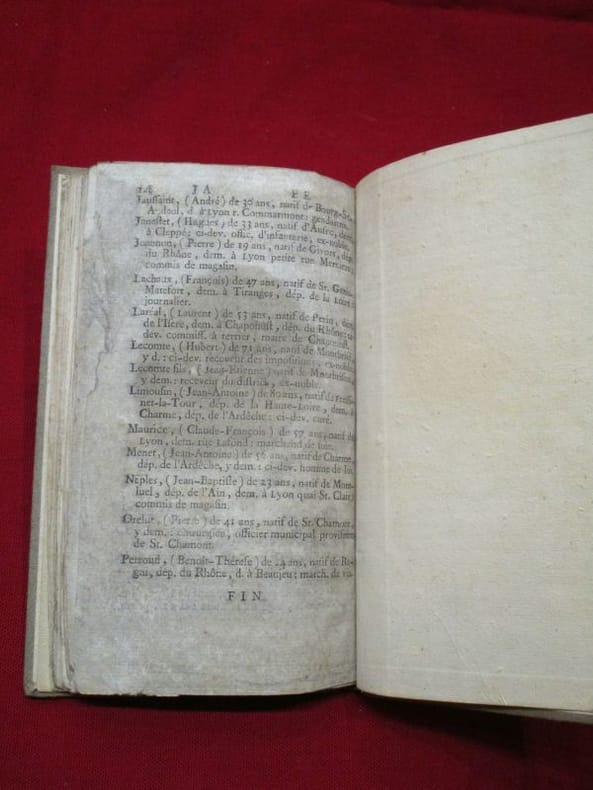 128 JA PE
Jaussaint, (André) de 30 ans, natif de Bourg-St.
Andaol, d. à Lyon r. Commarmont: gendarme.
à Cleppé; ci-dev. offic. d'infanterie, ex-noble.
Joannon, (Pierre) de 19 ans, natif de Givors, dép.
du Rhône, dem. à Lyon petite rue Merciere:
commis de magasin.
Lachaux, (François) de 47 ans, natif de St. Genis-
Matefort, dem. à Tiranges, dép. de la Loire:
journalier.
(Laurent) de 53 ans, natif de
de l'Isere, dem. à Chaponost, dép. du Rhône: ci-
dev. commiss. à terrier, maire de Chaponost.
Lecomte, (Hubert) de 71 ans, natif de Montbrison,
y d.: ci-dev. receveur des impositions, ex-noble.
Lecomte fils, (Jean-Etienne) natif de Montbrison,
y dem.: receveur du district, ex-noble.
Limousin, (Jean-Antoine) de ans, natif de
net-la-Tour, dép. de la Haute-Loire, dem. à
Charme, dép. de l'Ardêche: ci-dev. curé.
Maurice, (Claude-François) de 57 ans, natif de
Lyon, dem. rue Lafond: marchand de
Menet, (Jean-Antoine) de 56 ans, natif de Charme,
dép. de l'Ardèche, y dem.: ci-dev. homme de loi.
Neples, (Jean-Baptiste) de 23 ans, natif de Mont-
luel, dép. de l'Ain, dem. à Lyon quai St. Clair:
commis de magasin.
(Pierre) de 41 ans, natif de St. Chamont,
y dem.: chirurgien, officier municipal provisoire
de St. Chamont.
(Benoît-Thérese) de ans, natif de
dép. du Rhône, d. à Beaujeu; march. de
FIN